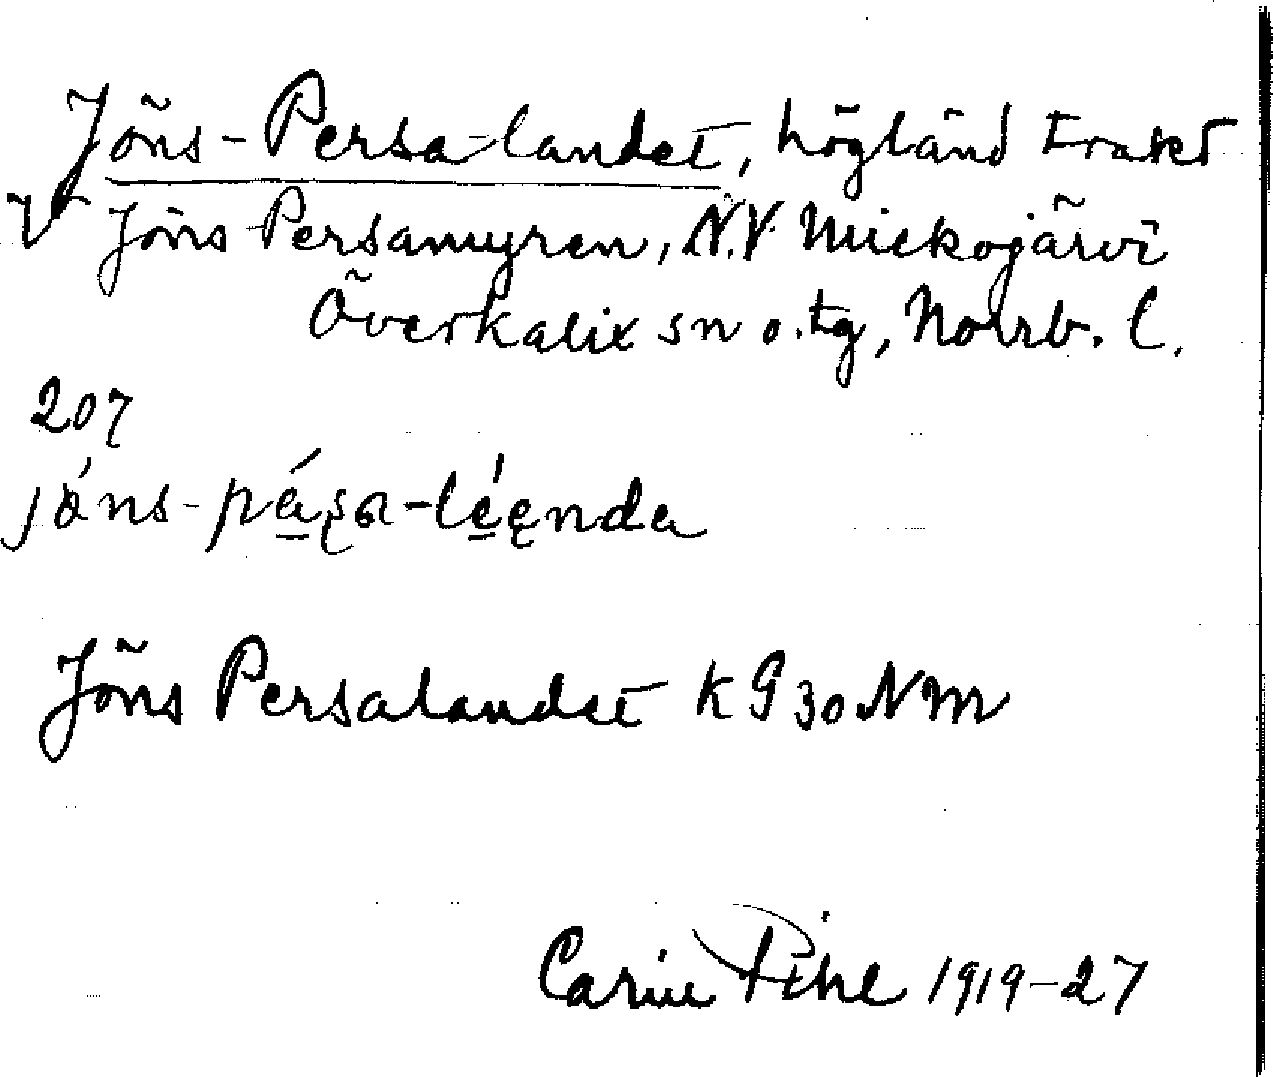 Jöns-Persa-landet, högländ trakt
V Jöns Persamyren, N.V. Mickojärvi
Överkalix sn o. tg, Norrb. l.
207
jóns-pá̱ṣa-lé̱ęnda
Jöns Persalandet KG 30 NM
Carin Pihl 1919-27